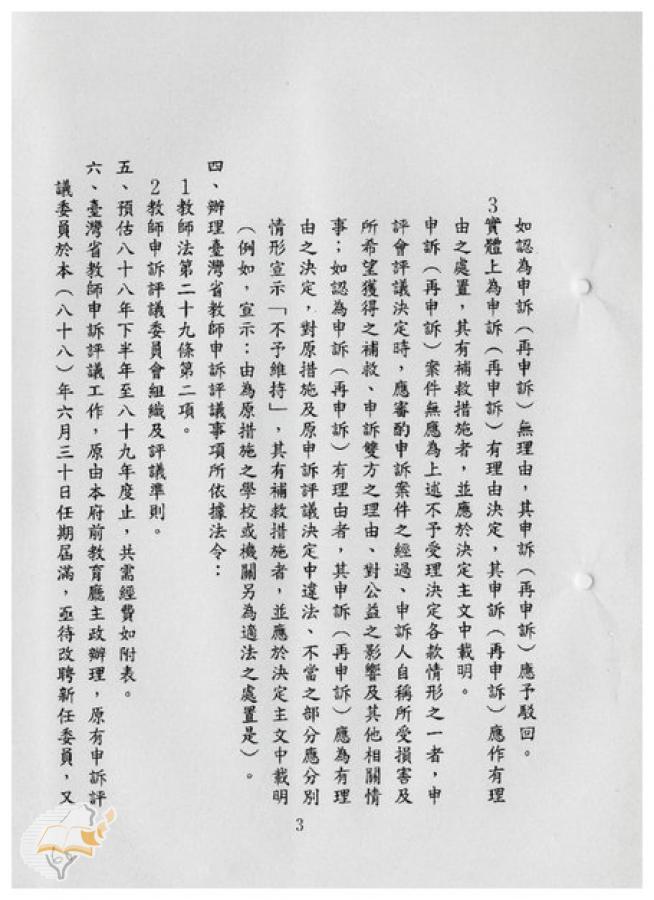 如認為申訴（再申訴）無理由，其申訴（再申訴）應予駁回。
3實體上為申訴（再申訴）有理由決定，其申訴（再申訴）應作有理
由之處置，其有補救措施者，並應於決定主文中載明。
申訴（再申訴）案件無應為上述不予受理決定各款情形之一者，申
評會評議決定時，應審酌申訴案件之經過、申訴人自稱所受損害及
所希望獲得之補救、申訴雙方之理由、對公益之影響及其他相關情
事；如認為申訴（再申訴）有理由者，其申訴（再申訴）應為有理
由之決定，對原措施及原申訴評議決定中違法、不當之部分應分別
情形宣示「不予維持」，其有補救措施者，並應於決定主文中載明
（例如，宣示：由為原措施之學校或機關另為適法之處置是）。
四、辦理臺灣省教師申訴評議事項所依據法令：
1教師法第二十九條第二項。
2教師申訴評議委員會組織及評議準則。
五、預估八十八年下半年至八十九年度止，共需經費如附表。
六、臺灣省教師申訴評議工作，原由本府前教育廳主政辦理，原有申訴評
議委員於本（八十八）年六月三十日任期屆滿，亟待改聘新任委員，又
3